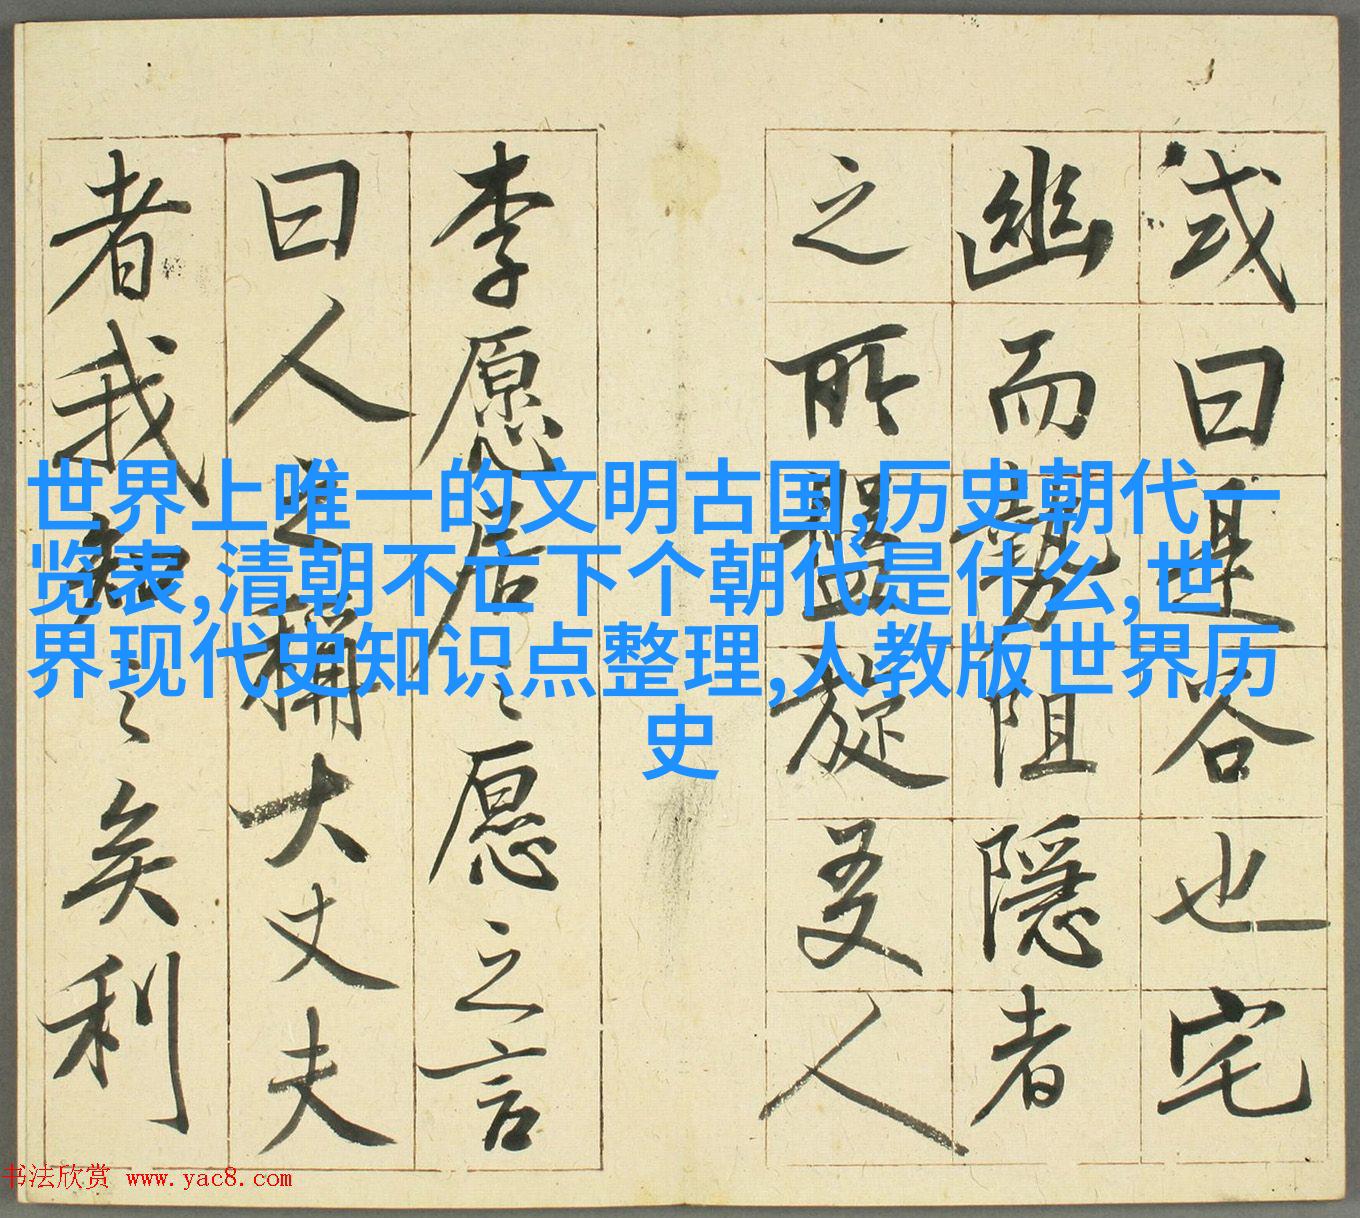 或曰是谷也宅
幽而勢阻隱者
之所盤旋友人
李愿居〻愿之言
曰人之稱大丈夫
者我知〻矣利
世界上唯一的文明古国,历史朝代一
览表,清朝不亡下个朝代是什么,世
界现代史知识点整理,人教版世界历
史
书法欣赏 www.yac8.com